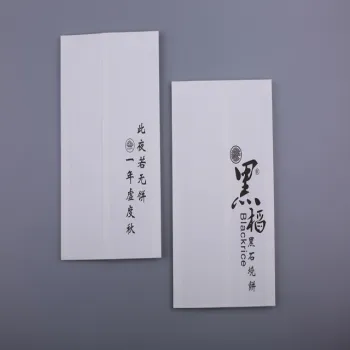 此夜若无饼
一年虚度秋
黑稻®
Blackrice
黑石烧饼